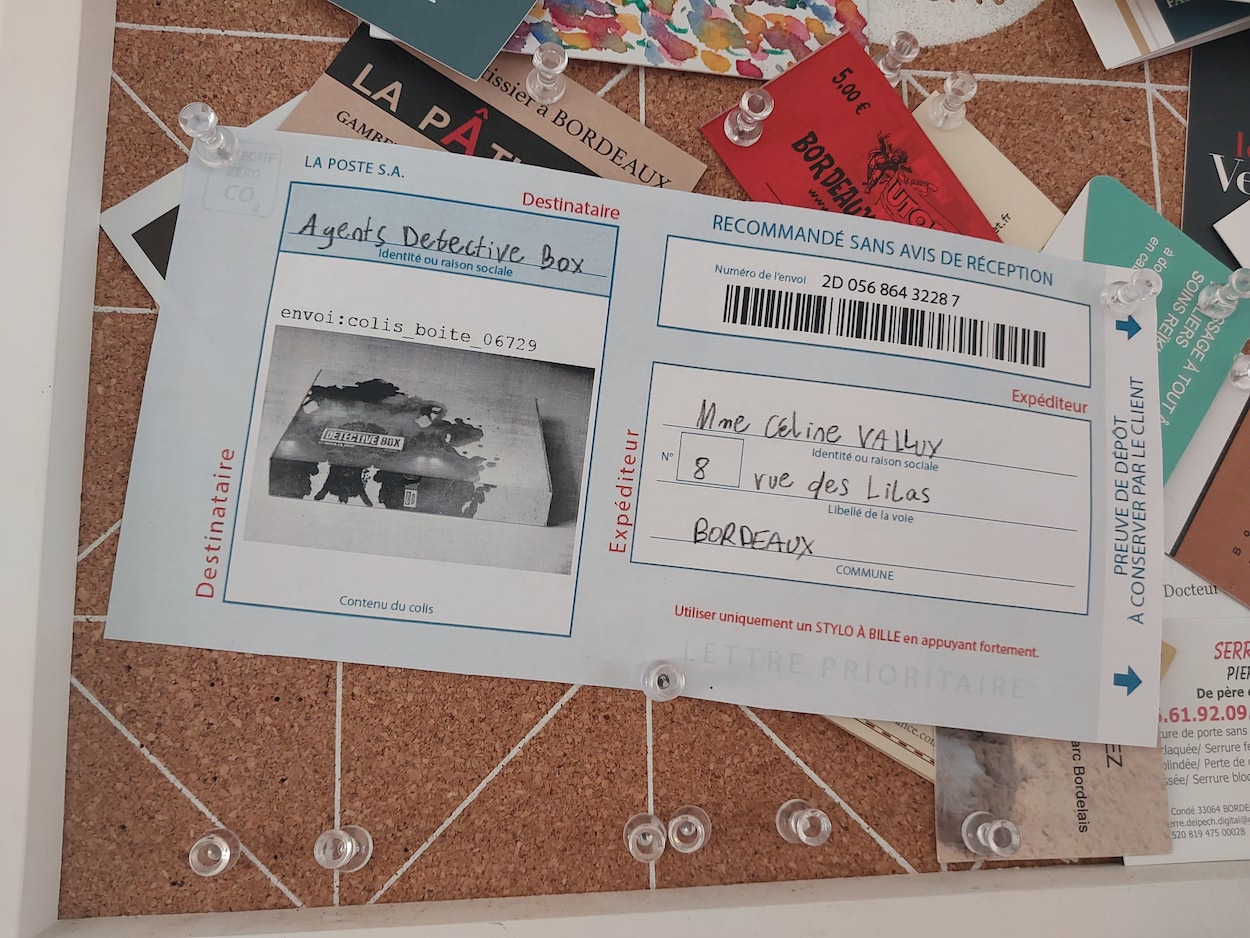 LA PÂT
GAMBE
tissier à BORDEAUX
5,00 €
BORDEAUX
www.
AUTO
et.fr
ECTIF
ZÉRO
CO2
LA POSTE S.A.
Destinataire
Agents Detective Box
Identité ou raison sociale
envoi:colis_boite_06729
DETECTIVE BOX
Contenu du colis
Destinataire
RECOMMANDÉ SANS AVIS DE RÉCEPTION
Numéro de l'envoi 2D 056 864 3228 7
Expéditeur
Expéditeur
Mme Céline VALLUY
Identité ou raison sociale
N° 8 rue des Lilas
Libellé de la voie
BORDEAUX
COMMUNE
Utiliser uniquement un STYLO À BILLE en appuyant fortement.
LETTRE PRIORITAIRE
PREUVE DE DÉPÔT
A CONSERVER PAR LE CLIENT
à do
en ca
SSAGE À TOUT
LIERS
SOINS REIK
Ve
Docteur
SERR
PIER
De père
5.61.92.09.
ure de porte sans
claquée/ Serrure fe
blindée/ Perte de
ssée/ Serrure bloc
Condé 33064 BORDE
erre.delpech.digital@
520 819 475 00028
ance.com
EZ
arc Bordelais